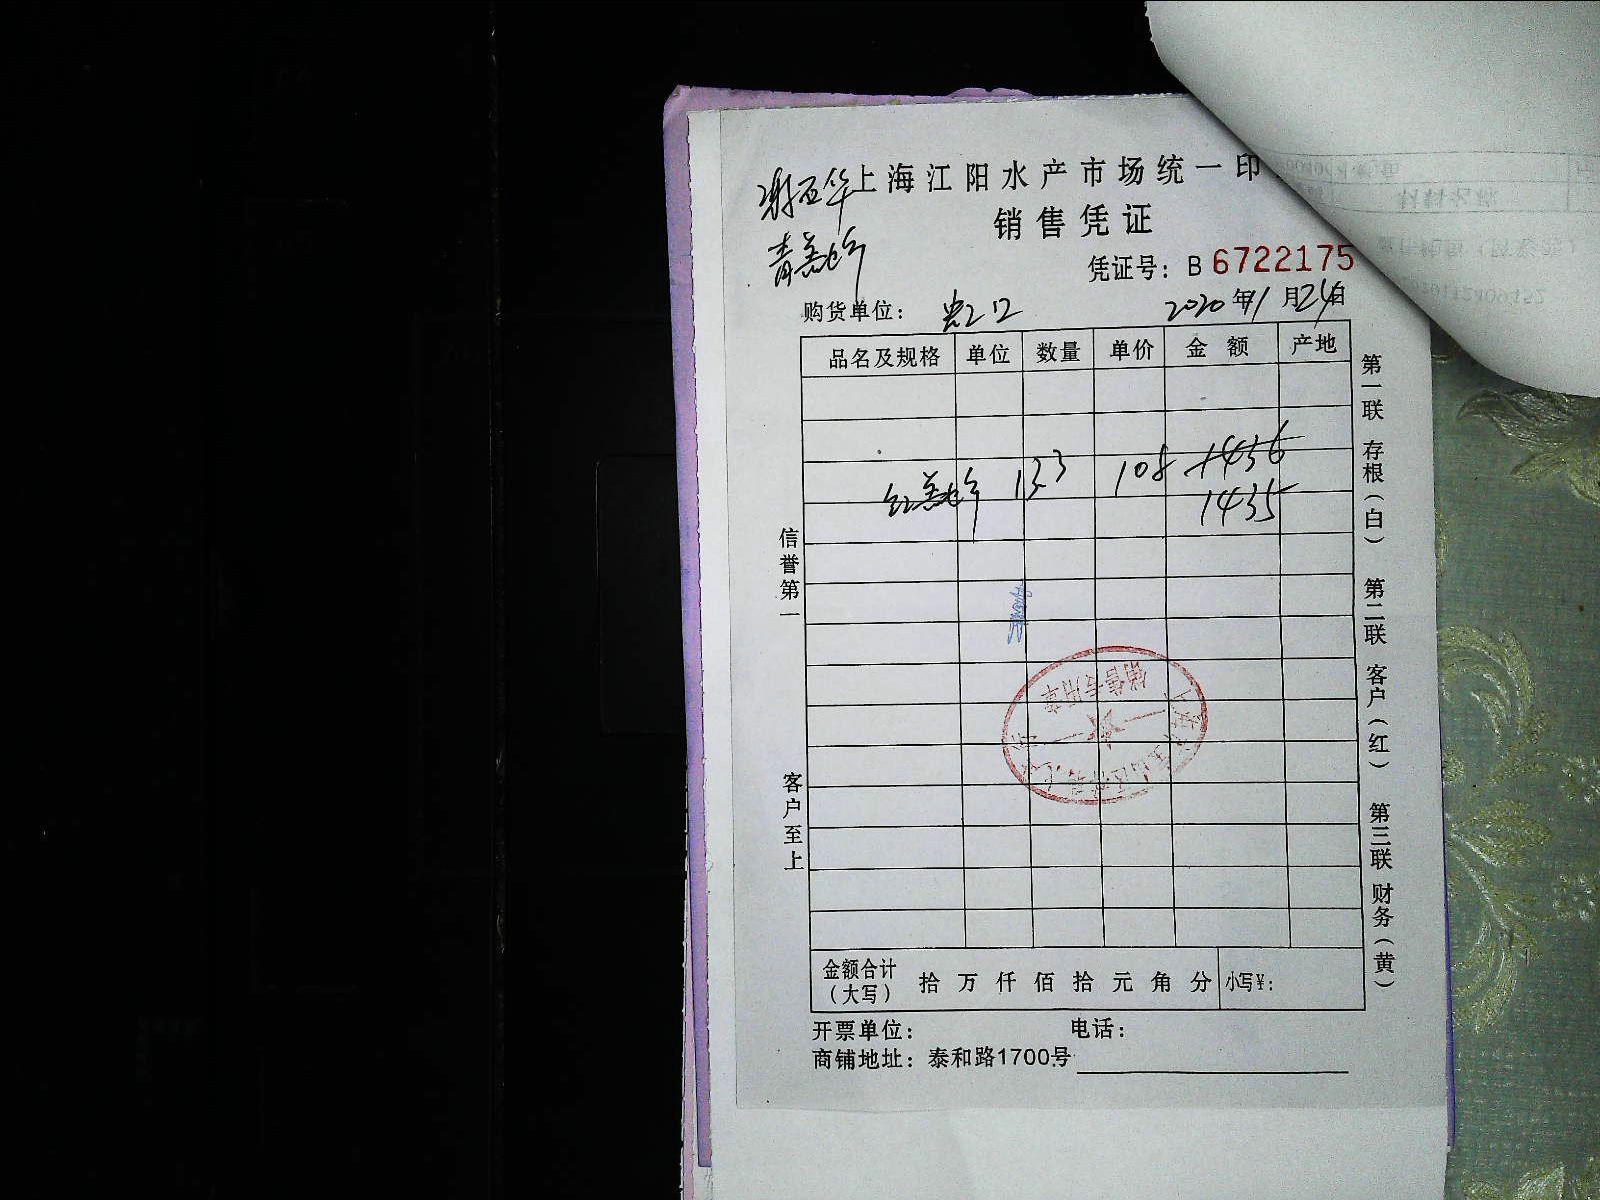 上海江阳水产市场统一印
谢亚华
销售凭证
凭证号：B 6722175
购货单位：
2020年11月24日
品名及规格 单位 数量 单价 金额 产地
133 108 1436
1435
信誉第一
客户至上
第一联 存根（白） 第二联 客户（红） 第三联 财务（黄）
销售专用章
金额合计（大写） 拾 万 仟 佰 拾 元 角 分 小写¥：
开票单位： 电话：
商铺地址：泰和路1700号